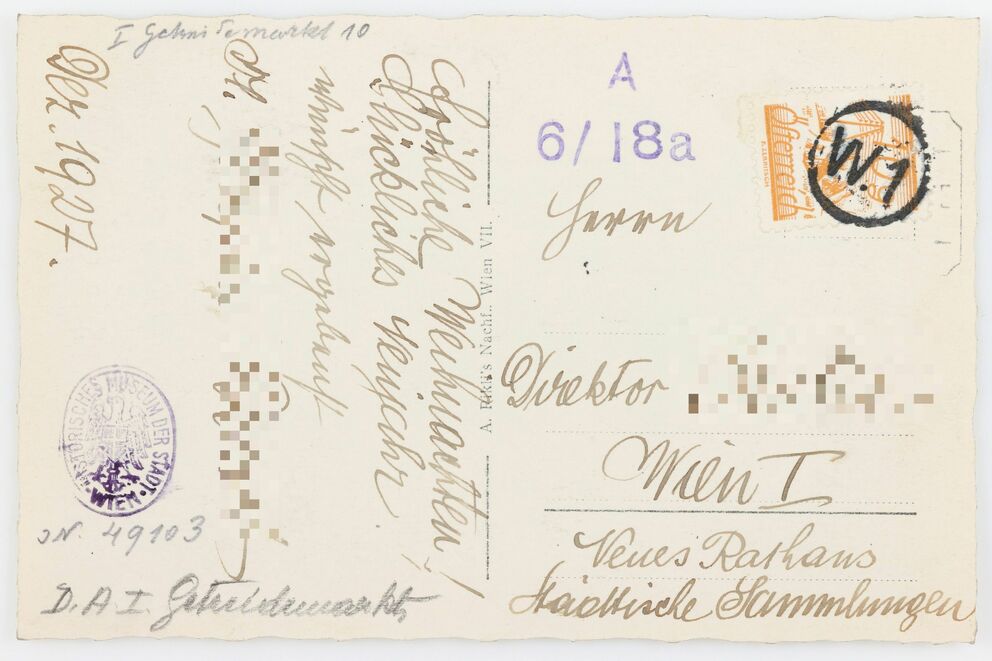 I Getreidemarkt 10
Fröhliche Weihnachten!
Glückliches Neujahr!
wünscht, ergebenst
Dr.
Dez. 1927.
HISTORISCHES MUSEUM DER STADT
WIEN
JN. 49103
D. A I. Getreidemarkt
A. Nachf., Wien VII.
A
6/18a
Österreich
W.1
Herrn
Direktor
Wien I
Neues Rathaus
Städtische Sammlungen